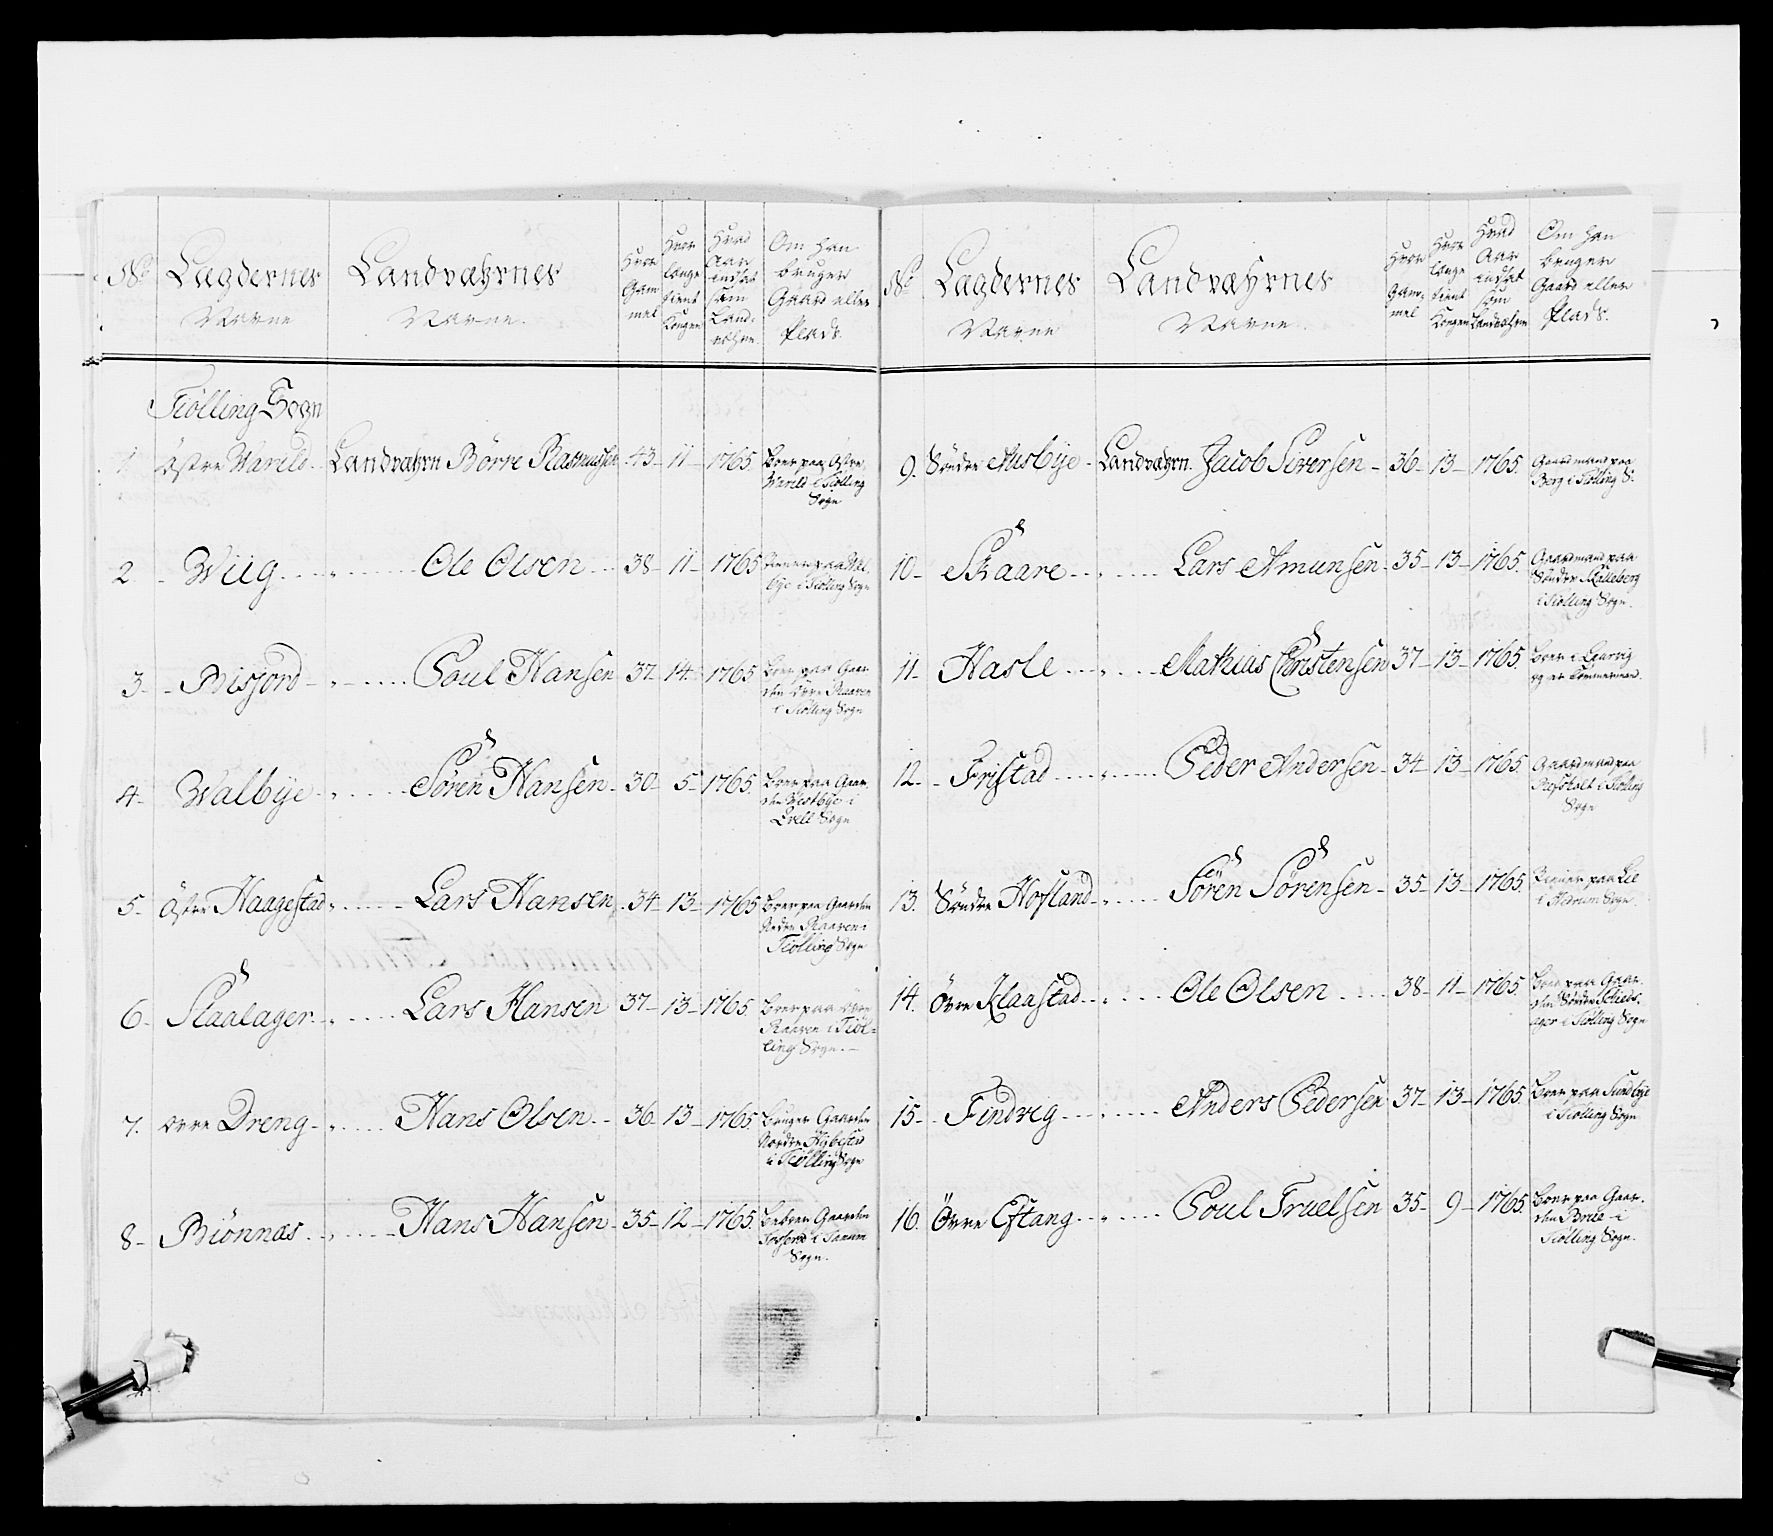 No
Lægdernes
Navne
Landværnes
Navne.
Hvor
Gam
mel
Hvor
længe
tient
Kongen
Hvad
Aar
indsat
som
Land-
værn.
Om han
bruger
Gaard eller
Plads.
Tiølling Sogn
1 Østre Wareld Landværn Børre Rasmussen 43 11 1765. Boer paa Østre
Wareld i Tiølling
Sogn
2 Wiig Ole Olsen 38 11 1765 Tiener paa
bye i Tiølling Sogn
3 Bisjord Poul Hansen 37 14 1765 Boer paa Gaar
den Øvre Raaren
i Tiølling Sogn
4 Walbye Sören Hansen 30 5 1765. Boer paa Gaar
den Westbye i
Sogn
5 Østre Haagestad Lars Hansen 34 13 1765 Boer paa Gaarden
Nedre Raaren i
Tiølling Sogn
6 Skaalager Lars Hansen 37 13 1765. Boer paa Øvre
Raaren i Tiøl-
ling Sogn.
7. Øvre Dreng Hans Olsen 36 13 1765 Bruger Gaarden
Nordre
i Tiølling Sogn
8 Biønnæs Hans Hansen 35 12 1765. Beboer Gaarden
i Tanum
Sogn.
No
Lægdernes
Navne
Landværnes
Navne.
Hvor
Gam-
mel
Hvor
længe
tient
Kongen
Hvad
Aar
indsat
som
Landværn
Om han
bruger
Gaard eller
Plads.
9. Søndre Ausbye Landværn. Jacob Siversen 36 13 1765. Gaardmand paa
Berg i Tiølling S.
10 Skaare Lars Amunsen 35 13 1765. Gaardmand paa
Søndre Skalleberg
i Tiølling Sogn.
11 Hasle Mathias Christensen 37 13 1765. Boer i Laurvig
og er Tømmermand.
12 Fristad Peder Andersen 34 13 1765. Gaardmand paa
i Tiølling
Sogn
13. Søndre Hofland Sören Sörensen 35 13 1765. Tiener paa Lie
i Hedrum Sogn.
14. Övre Klaastad Ole Olsen 38 11 1765. Boer paa Gaar-
den Søndre
ager i Tiølling Sogn
15 Findvig Anders Pedersen 37 13 1765. Boer paa Sundbye
i Tiølling Sogn
16. Övre Eftang Poul Truelsen 35 9 1765. Boer paa Gaar-
den i
Tiølling Sogn.